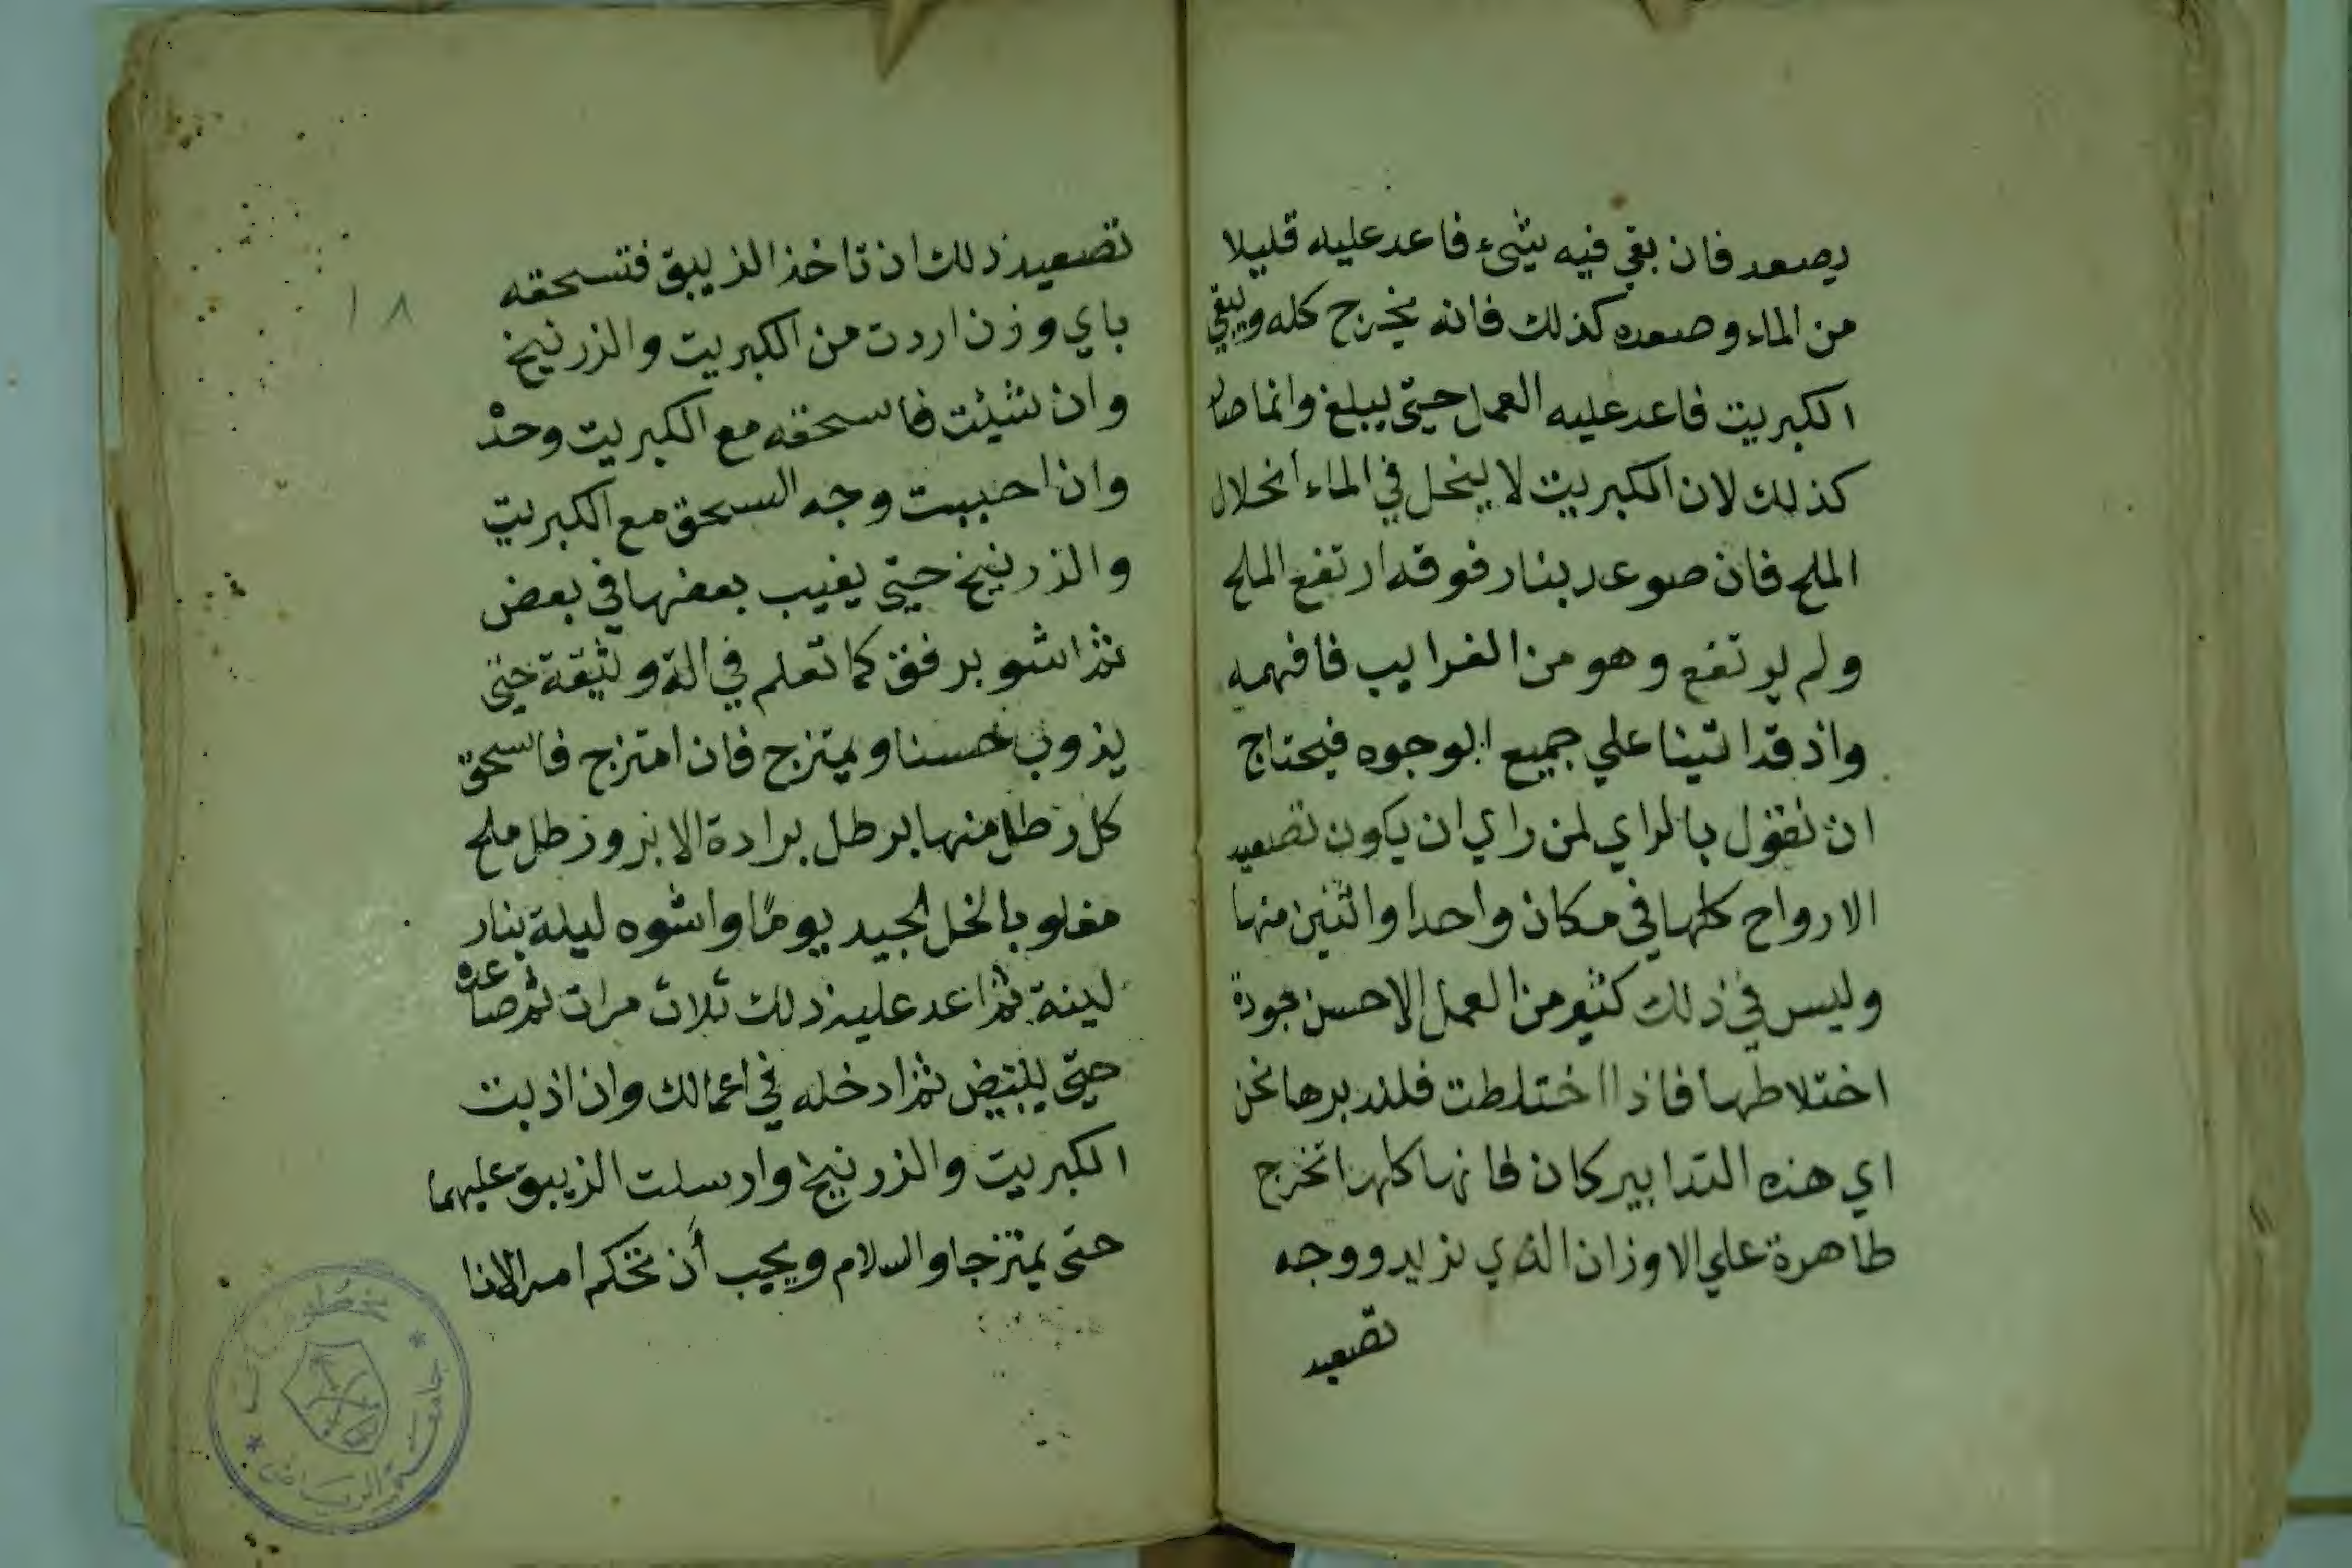 يصعد فان بقي فيه شيء فاعد عليه قليلا
من الماء وصعده كذلك فانه يخرج كله ويبقي
الكبريت فاعد عليه العمل حتي يبلغ وانما صار
كذلك لان الكبريت لا ينحل في الماء انحلال
الملح فان صوعد بنار فوقه ارتفع الملح
ولم يرتفع وهو من الغرايب فافهمه
واذ قد اتينا علي جميع الوجوه فيحتاج
ان نقول بالراي لمن راي ان يكون تصعيد
الارواح كلها في مكان واحد او اثنين منها
وليس في ذلك كثير من العمل الا حسن جودة
اختلاطها فاذا اختلطت فلندبرها نحن
اي هذه التدابير كان فانها كلها تخرج
طاهرة علي الاوزان الذي نريد ووجه
تصعيد
تصعيد ذلك ان تاخذ الزيبق فتسحقه
باي وزن اردت من الكبريت والزرنيخ
وان شئت فاسحقه مع الكبريت وحده
وان احببت وجه السحق مع الكبريت
والزرنيخ حتي يغيب بعضها في بعض
ثم اشو برفق كما تعلم في الة وثيقة حتي
يذوب حسنا ويمتزج فان امتزج فاسحق
كل رطل منها برطل برادة الابر ورطل ملح
مغلو بالخل الجيد يوما واشوه ليلة بنار
لينة ثم اعد عليه ذلك ثلاث مرات ثم صاعده
حتي يبيض ثم ادخله في اعمالك وان اذبت
الكبريت والزرنيخ وارسلت الزيبق عليهما
حتي يمتزجا والسلام ويجب أن تحكم امر الانا
١٨
مخطوطات
جامعة الرياض